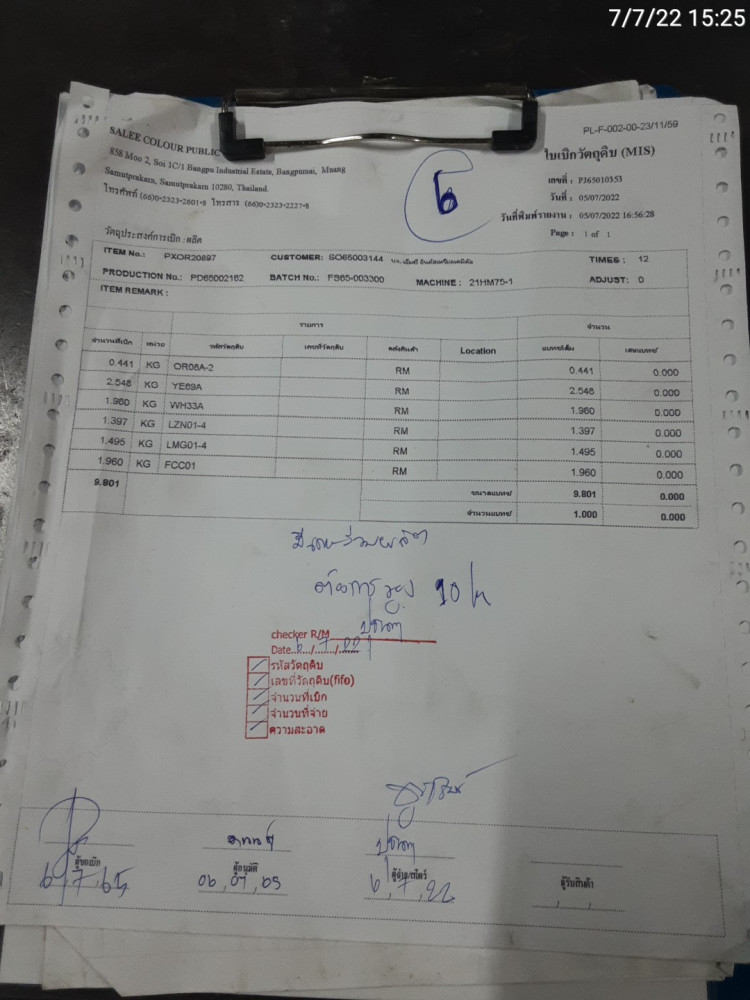 7/7/22 15:25
PL-F-002-00-23/11/59
SALEE COLOUR PUBLIC
858 Moo 2, Soi 1C/1 Bangpu Industrial Estate, Bangpumai, Muang
Samutprakarn, Samutprakarn 10280, Thailand.
โทรศัพท์ (66)0-2323-2601-8 โทรสาร (66)0-2323-2227-8
6
ใบเบิกวัตถุดิบ (MIS)
เลขที่ : PJ65010353
วันที่ : 05/07/2022
วันที่พิมพ์รายงาน : 05/07/2022 16:56:28
Page : 1 of 1
วัตถุประสงค์การเบิก : ผลิต
ITEM No.: PXOR20897 CUSTOMER: SO65003144 TIMES : 12
PRODUCTION No.: PD65002162 BATCH No.: FS65-003300 MACHINE : 21HM75-1 ADJUST: 0
ITEM REMARK :
รายการ จำนวน
จำนวนที่เบิก หน่วย รหัสวัตถุดิบ เลขที่วัตถุดิบ คลังสินค้า Location แบทช์เต็ม เศษแบทช์
0.441 KG OR08A-2 RM 0.441 0.000
2.548 KG YE69A RM 2.548 0.000
1.960 KG WH33A RM 1.960 0.000
1.397 KG LZN01-4 RM 1.397 0.000
1.495 KG LMG01-4 RM 1.495 0.000
1.960 KG FCC01 RM 1.960 0.000
9.801 ขนาดแบทช์ 9.801 0.000
จำนวนแบทช์ 1.000 0.000
ต้องการ 10
checker R/M
Date 6/7/22
รหัสวัตถุดิบ
เลขที่วัตถุดิบ(fifo)
จำนวนที่เบิก
จำนวนที่จ่าย
ความสะอาด
ผู้ขอเบิก ผู้อนุมัติ ผู้จ่าย/สโตร์ ผู้รับสินค้า
6,7,65 06,07,65 6,7,22